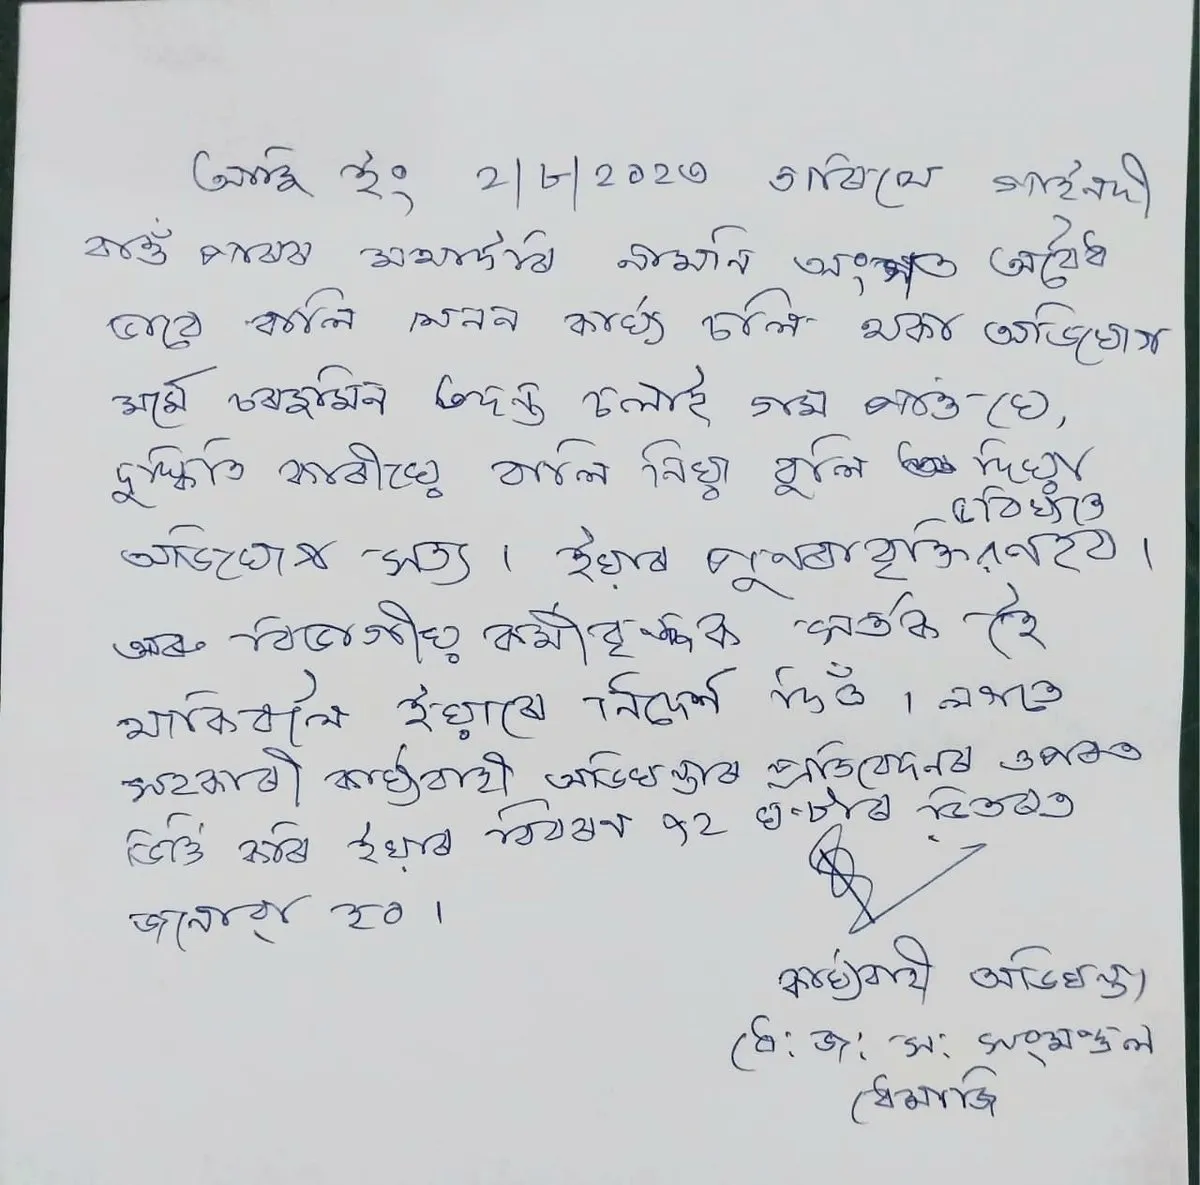 আজি ইং 2/৮/2০2৩ তাৰিখে গাইনদী
বাওঁ পাৰৰ মথাউৰি নামনি অংশত অবৈধ
ভাবে বালি খনন কাৰ্য্য চলি থকা অভিযোগ
মৰ্মে চৰজমিন তদন্ত চলাই গম পাওঁ যে,
দুষ্কৃতি কাৰীয়ে বালি নিয়া বুলি দিয়া
অভিযোগ সত্য । ইয়াৰ পুনৰাবৃত্তি ভৱিষ্যতে নহব ।
আৰু বিভাগীয় কৰ্মীবৃন্দক সৰ্তক হৈ
থাকিবলৈ ইয়াৰে নিৰ্দেশ দিওঁ । লগতে
সহকাৰী কাৰ্য্যবাহী অভিযন্তাৰ প্ৰতিবেদনৰ ওপৰত
ভিত্তি কৰি ইয়াৰ বিবৰণ ৭2 ঘণ্টাৰ ভিতৰত
জনোৱা হব ।
কাৰ্য্যবাহী অভিযন্তা
ধে: জ: স: সংমণ্ডল
ধেমাজি